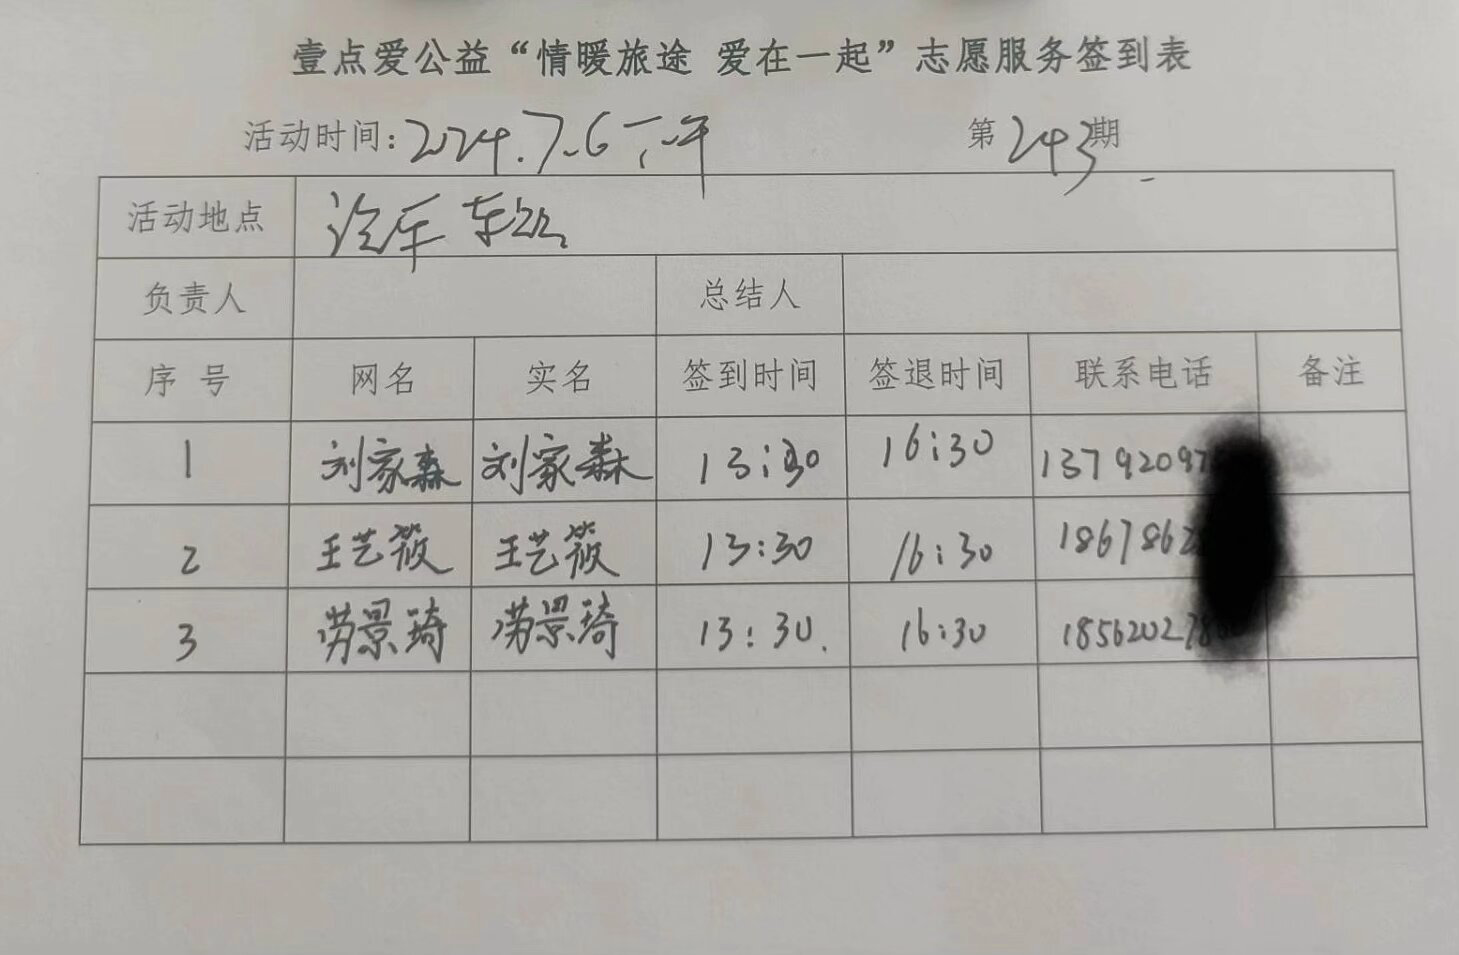 壹点爱公益“情暖旅途 爱在一起”志愿服务签到表
活动时间：2024.7.6下午 第243期
活动地点 汽车车站
负责人 总结人
序号 网名 实名 签到时间 签退时间 联系电话 备注
1 刘家森 刘家森 13:30 16:30 1379209
2 王艺筱 王艺筱 13:30 16:30 1867862
3 劳景琦 劳景琦 13:30. 16:30 18562027